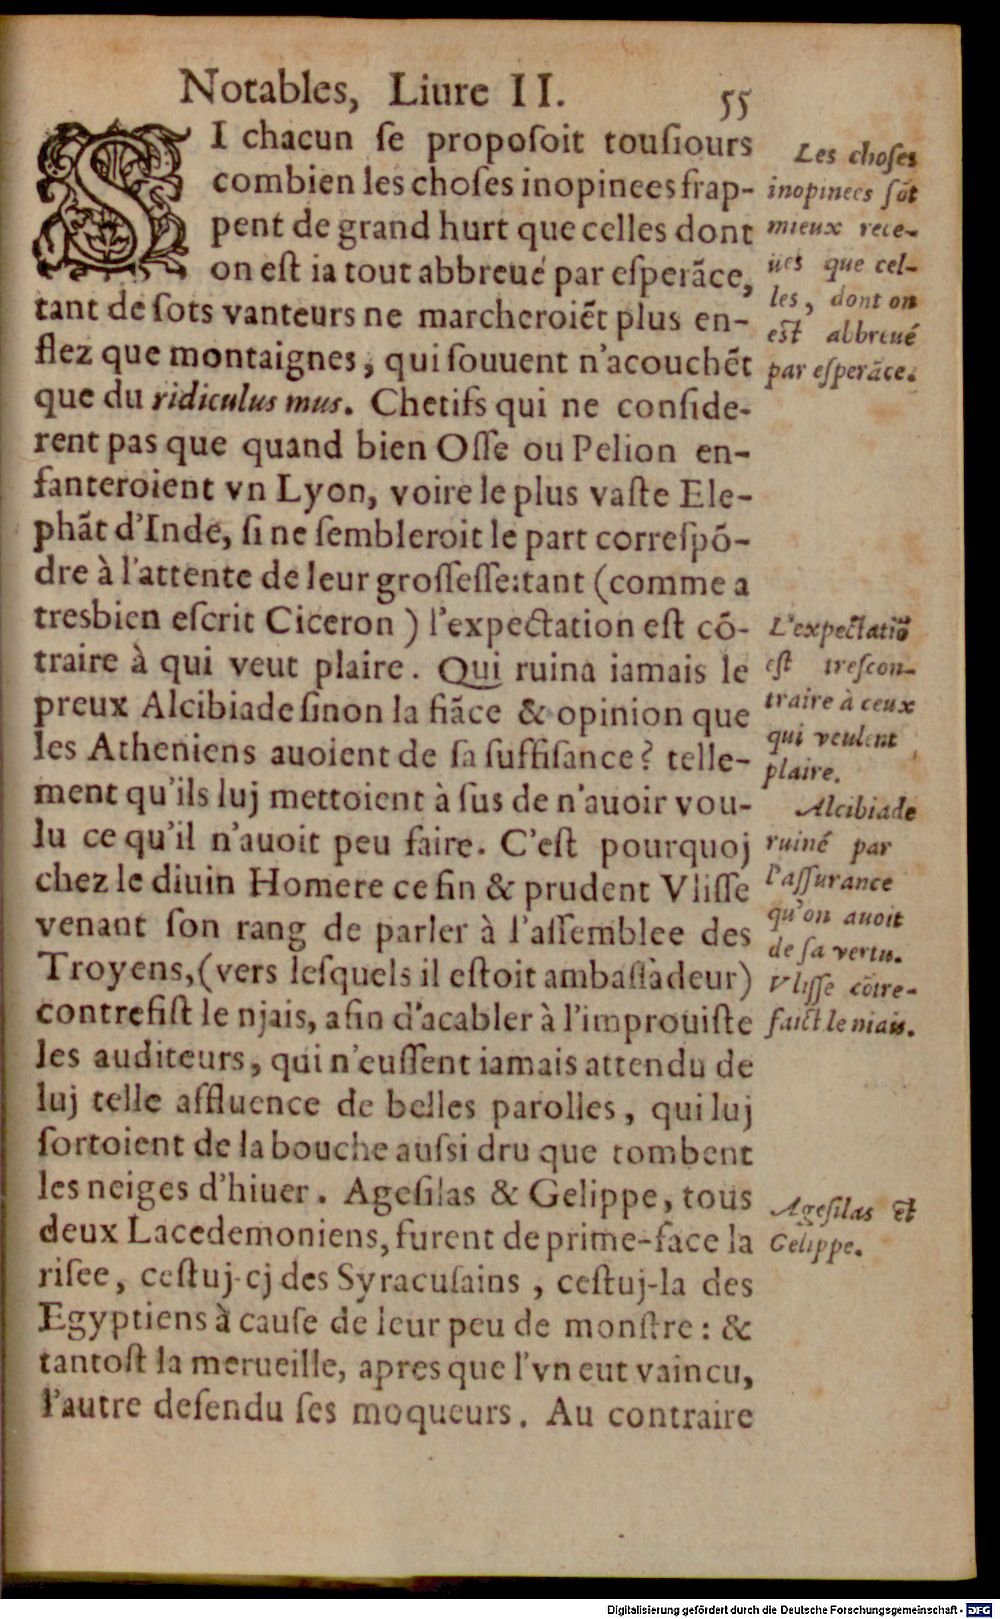 Notables, Liure II.
55
SI chacun se proposoit tousiours
combien les choses inopinees frap-
pent de grand hurt que celles dont
on est ia tout abbreué par esperãce,
tant de sots vanteurs ne marcheroiẽt plus en-
flez que montaignes, qui souuent n'acouchẽt
que du ridiculus mus. Chetifs qui ne conside-
rent pas que quand bien Osse ou Pelion en-
fanteroient vn Lyon, voire le plus vaste Ele-
phãt d'Inde, si ne sembleroit le part correspõ-
dre à l'attente de leur grossesse: tant (comme a
tresbien escrit Ciceron) l'expectation est cõ-
traire à qui veut plaire. Qui ruina iamais le
preux Alcibiade sinon la fiãce & opinion que
les Atheniens auoient de sa suffisance? telle-
ment qu'ils luj mettoient à sus de n'auoir vou-
lu ce qu'il n'auoit peu faire. C'est pourquoj
chez le diuin Homere ce fin & prudent Vlisse
venant son rang de parler à l'assemblee des
Troyens, (vers lesquels il estoit ambassadeur)
contrefist le njais, afin d'acabler à l'improuiste
les auditeurs, qui n'eussent iamais attendu de
luj telle affluence de belles parolles, qui luj
sortoient de la bouche aussi dru que tombent
les neiges d'hiuer. Agesilas & Gelippe, tous
deux Lacedemoniens, furent de prime-face la
risee, cestuj-cj des Syracusains, cestuj-la des
Egyptiens à cause de leur peu de monstre: &
tantost la merueille, apres que l'vn eut vaincu,
l'autre defendu ses moqueurs. Au contraire
Les choses
inopinees sõt
mieux rece-
ües que cel-
les, dont on
est abbreué
par esperãce.
L'expectatiõ
est trescon-
traire à ceux
qui veulent
plaire.
Alcibiade
ruiné par
l'assurance
qu'on auoit
de sa vertu.
Vlisse cõtre-
faict le niais.
Agesilas et
Gelippe.
Digitalisierung gefördert durch die Deutsche Forschungsgemeinschaft - DFG